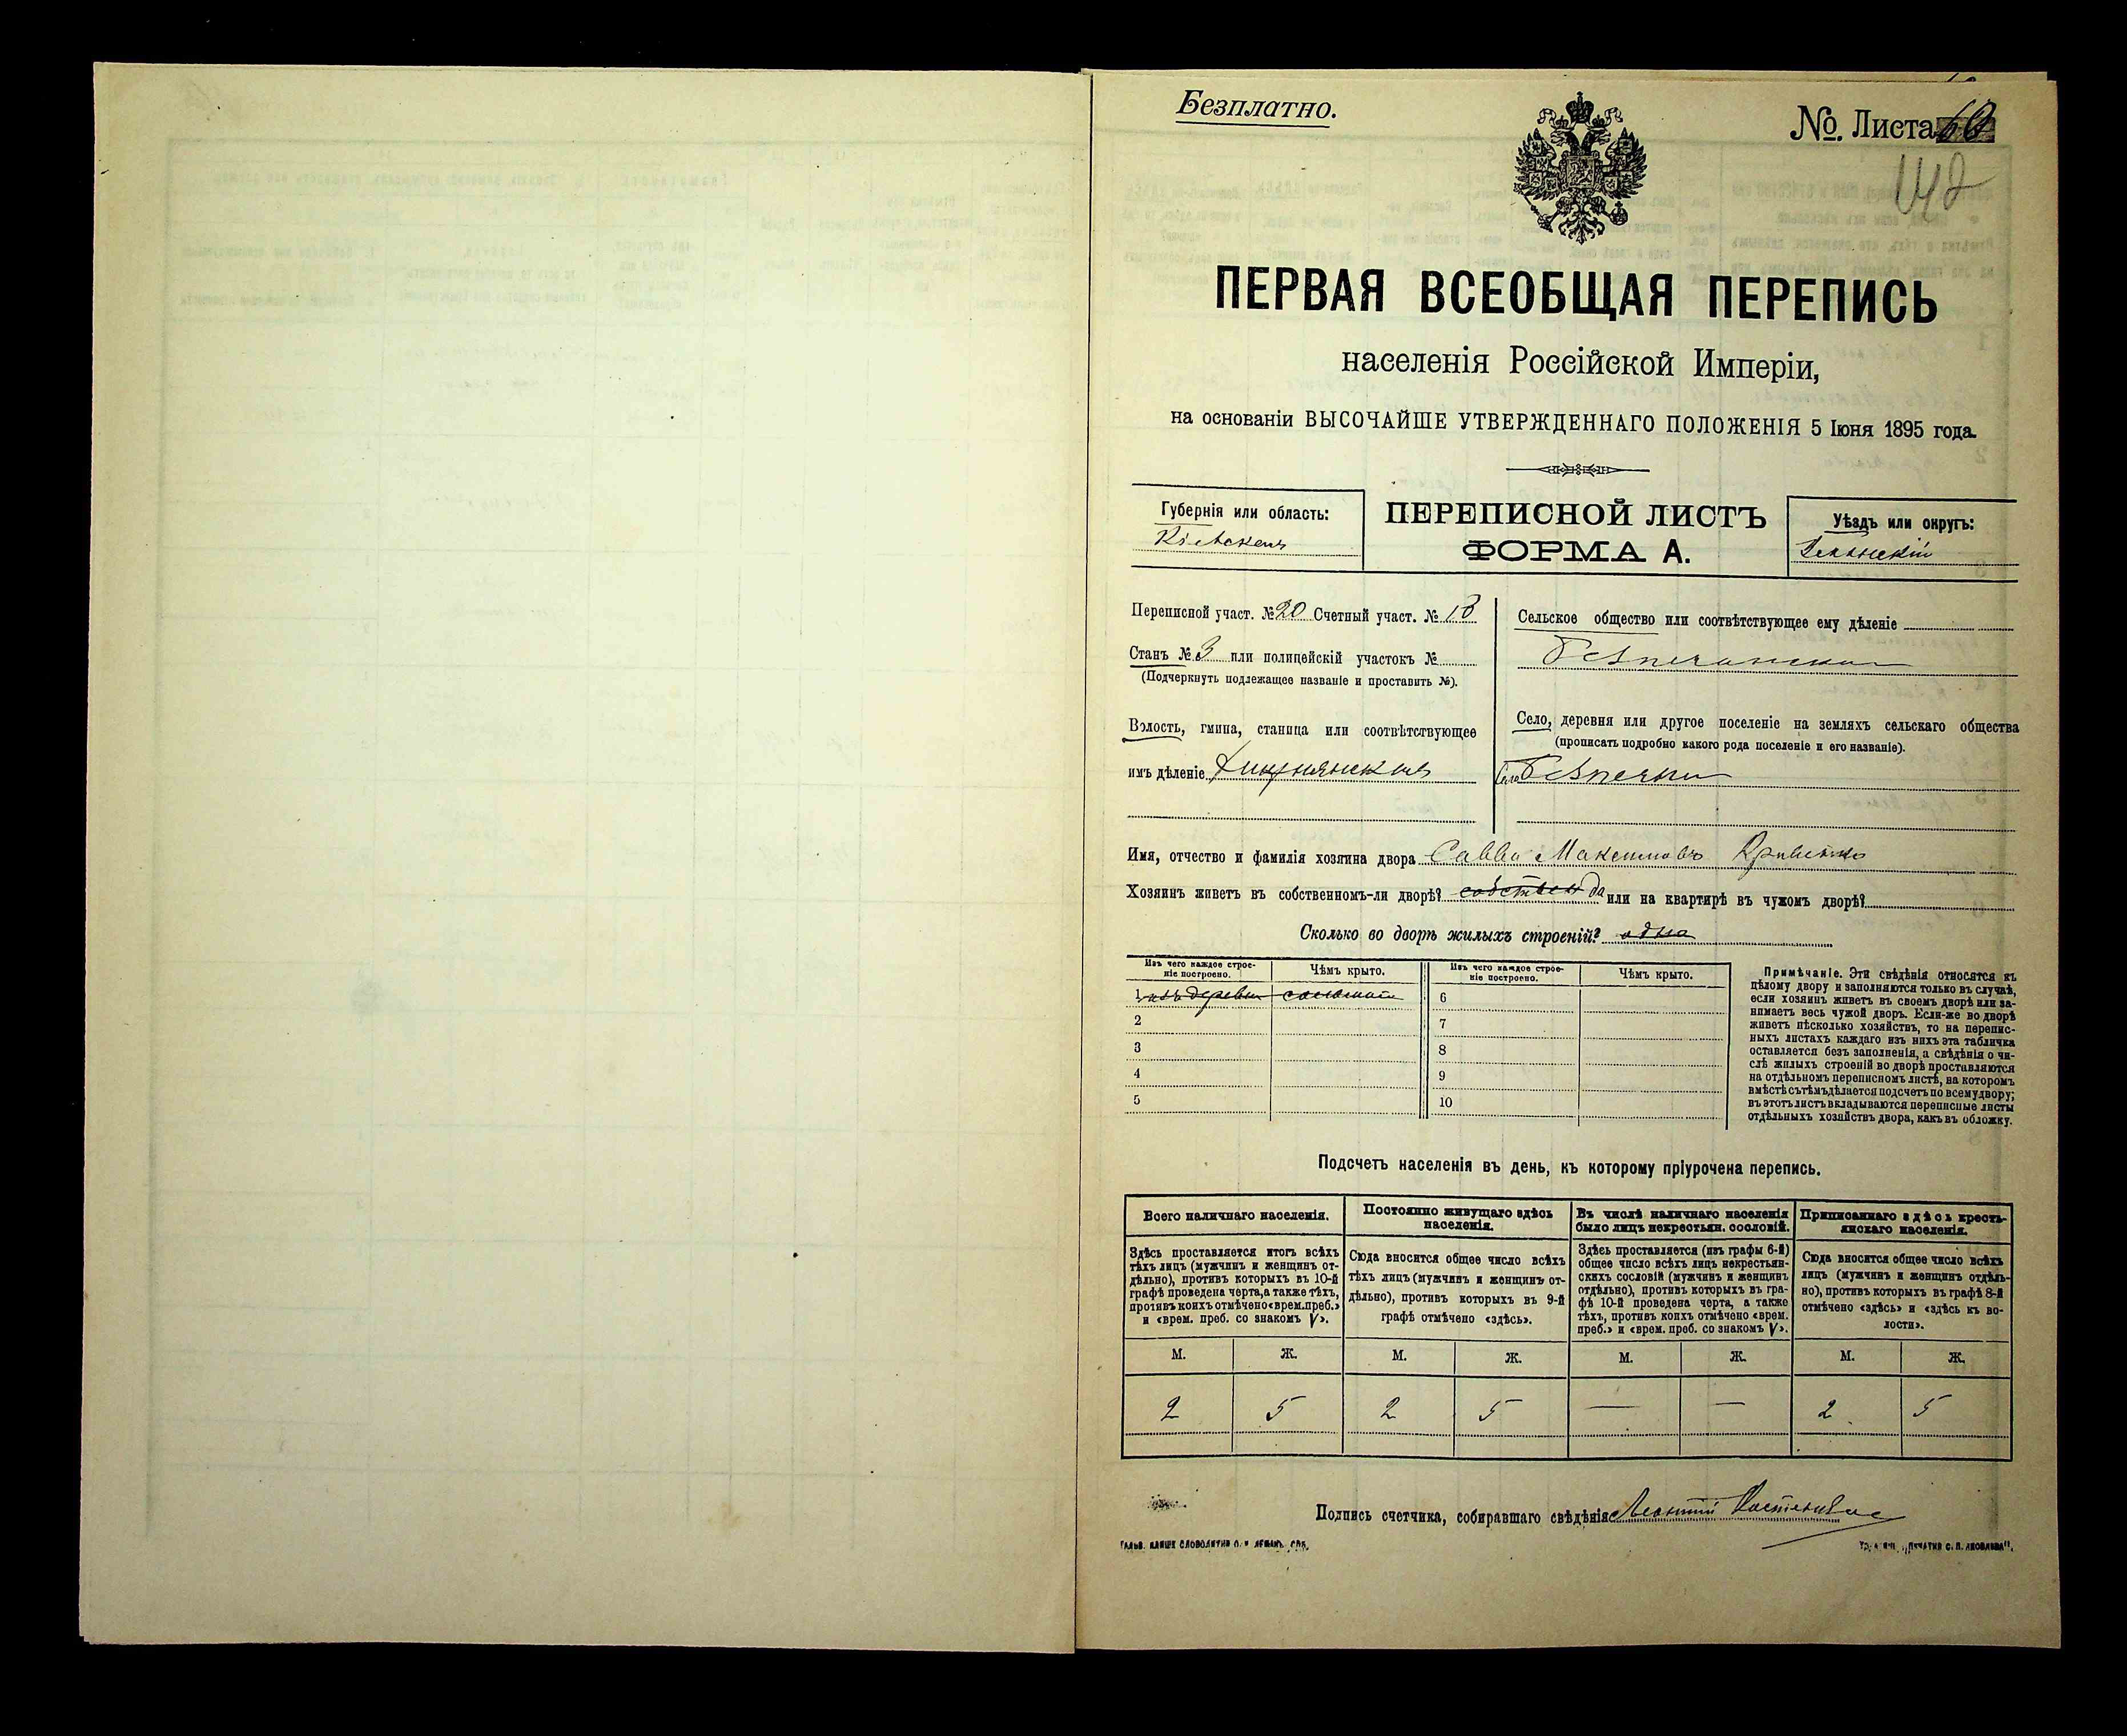 Безплатно.
№. Листа 60
142
ПЕРВАЯ ВСЕОБЩАЯ ПЕРЕПИСЬ
населенія Россійской Имперіи,
на основаніи ВЫСОЧАЙШЕ УТВЕРЖДЕННАГО ПОЛОЖЕНІЯ 5 Іюня 1895 года.
Губернія или область:
Кіевская
ПЕРЕПИСНОЙ ЛИСТЪ
ФОРМА А.
Уѣздъ или округъ:
Переписной участ. № 20 Счетный участ. № 13
Станъ № 3 или полицейскій участокъ №
(Подчеркнуть подлежащее названіе и проставить №).
Волость, гмина, станица или соотвѣтствующее
имъ дѣленіе
Сельское общество или соотвѣтствующее ему дѣленіе
Безпечанская
Село, деревня или другое поселеніе на земляхъ сельскаго общества
(прописать подробно какого рода поселеніе и его названіе).
Село Безпечни
Имя, отчество и фамилія хозяина двора Савва Максимовъ Кравченко
Хозяинъ живетъ въ собственномъ-ли дворѣ? собствен да или на квартирѣ въ чужомъ дворѣ?
Сколько во дворѣ жилыхъ строеній? одна
Изъ чего каждое строе-
ніе построено.
Чѣмъ крыто.
Изъ чего каждое строе-
ніе построено.
Чѣмъ крыто.
1 изъ дерева соломой 6
2 7
3 8
4 9
5 10
Примѣчаніе. Эти свѣдѣнія относятся къ
цѣлому двору и заполняются только въ случаѣ,
если хозяинъ живетъ въ своемъ дворѣ или за-
нимаетъ весь чужой дворъ. Если-же во дворѣ
живетъ нѣсколько хозяйствъ, то на перепис-
ныхъ листахъ каждаго изъ нихъ эта табличка
оставляется безъ заполненія, а свѣдѣнія о чи-
слѣ жилыхъ строеній во дворѣ проставляются
на отдѣльномъ переписномъ листѣ, на которомъ
вмѣстѣ съ тѣмъ дѣлается подсчетъ по всему двору;
въ этотъ листъ вкладываются переписные листы
отдѣльныхъ хозяйствъ двора, какъ въ обложку.
Подсчетъ населенія въ день, къ которому пріурочена перепись.
Всего наличнаго населенія.
Постоянно живущаго здѣсь
населенія.
Въ числѣ наличнаго населенія
было лицъ некрестьян. сословій.
Приписаннаго здѣсь кресть-
янскаго населенія.
Здѣсь проставляется итогъ всѣхъ
тѣхъ лицъ (мужчинъ и женщинъ от-
дѣльно), противъ которыхъ въ 10-й
графѣ проведена черта, а также тѣхъ,
противъ коихъ отмѣчено «врем. преб.»
и «врем. преб. со знакомъ V».
Сюда вносится общее число всѣхъ
тѣхъ лицъ (мужчинъ и женщинъ от-
дѣльно), противъ которыхъ въ 9-й
графѣ отмѣчено «здѣсь».
Здѣсь проставляется (изъ графы 6-й)
общее число всѣхъ лицъ некрестьян-
скихъ сословій (мужчинъ и женщинъ
отдѣльно), противъ которыхъ въ гра-
фѣ 10-й проведена черта, а также
тѣхъ, противъ коихъ отмѣчено «врем.
преб.» и «врем. преб. со знакомъ V».
Сюда вносится общее число всѣхъ
лицъ (мужчинъ и женщинъ отдѣль-
но), противъ которыхъ въ графѣ 8-й
отмѣчено «здѣсь» и «здѣсь къ во-
лости».
М. Ж. М. Ж. М. Ж. М. Ж.
2 5 2 5 — — 2 5
Подпись счетчика, собиравшаго свѣдѣнія Леонтій